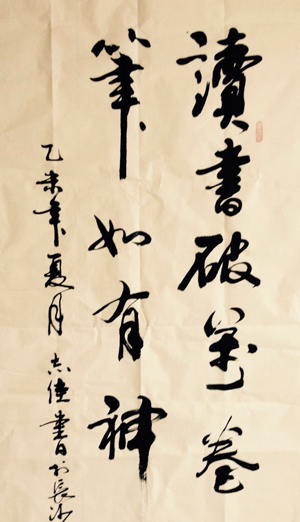 讀書破萬卷
筆如有神
乙未年夏月 志書於長沙